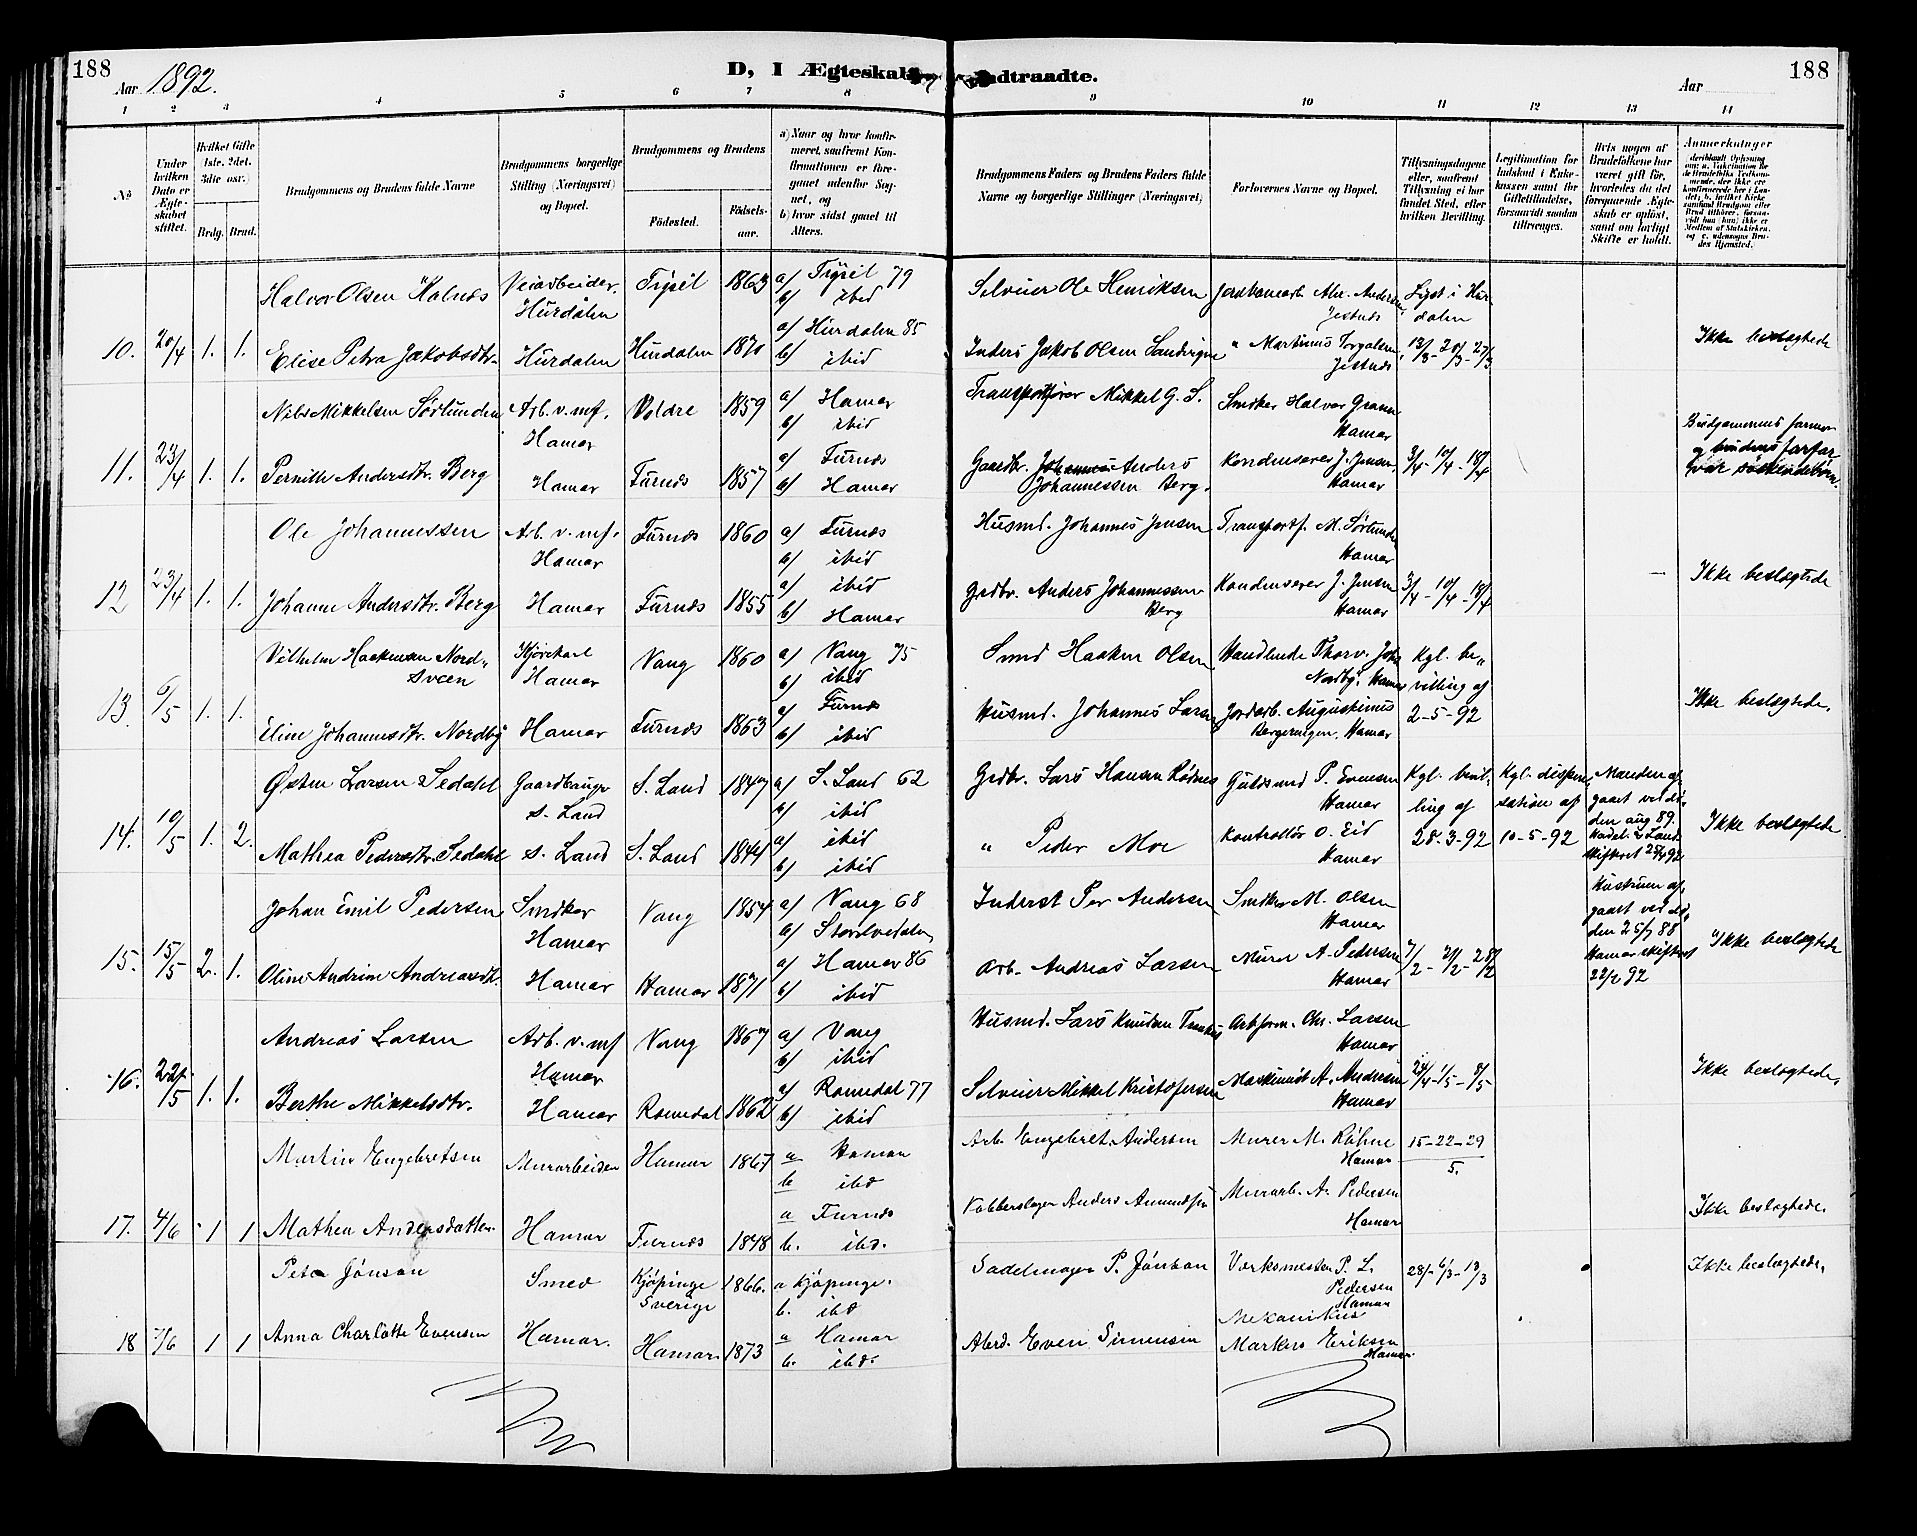 188
D, I Ægteskab Indtraadte.
188
Aar 1892.
Aar
1 2 3 4 5 6 7 8 9 10 11 12 13 14
No
Under hvilken Dato er Ægteskabet stiftet.
Hvilket Gifte (1ste, 2det, 3die osv.)
Brdg. Brud.
Brudgommens og Brudens fulde Navne
Brudgommens borgerlige Stilling (Næringsvei) og Bopæl.
Brudgommens og Brudens
Fødested.
Fødselsaar.
a) Naar og hvor konfirmeret, saafremt Konfirmationen er foregaaet udenfor Sognet, og
b) hvor sidst gaaet til Alters.
Brudgommens Faders og Brudens Faders fulde Navne og borgerlige Stillinger (Næringsvei)
Forlovernes Navne og Bopæl.
Tillysningsdagene eller, saafremt Tillysning ei har fundet Sted, efter hvilken Bevilling.
Legitimation for Indskud i Enkekassen samt for Giftetilladelse, forsaavidt saadan tiltrænges.
Hvis nogen af Brudefolkene har været gift før, hvorledes da det foregaaende Ægteskab er opløst, samt om lovligt Skifte er holdt.
Anmerkninger
10. 20/4 1. 1.
Halvor Olsen
Veiarbeider. Hurdalen
Trysil 1863
a) Trysil 79
b) ibid
Selveier Ole Henriksen
Lyst i Hurdalen
Elise Petra Jakobsdtr.
Hurdalen
Hurdalen 1870
a) Hurdalen 85
b) ibid
Inders Jakob Olsen
" Martinus
13/3 - 20/3 - 27/3
Ikke beslægtede
11. 23/4 1. 1.
Nils Mikkelsen Sørlunden
Arb. v. mf. Hamar
Voldre 1859
a) Hamar
b) ibid
Transportfører Mikkel G. S.
Snedker Halvor Gran Hamar
Pernille Andersdtr. Berg
Hamar
Furnes 1857
a) Furnes
b) Hamar
Gaardbr. Anders Johannessen Berg.
Kondensever J. Jensen, Hamar
3/4 - 10/4 - 18/4
Brudgommens farmor og brudens farfar var søskendebørn.
12 23/4 1. 1.
Ole Johannessen
Arb. v. mf. Hamar
Furnes 1860
a) Furnes
b) ibid
Husmd. Johannes Jensen
Transportf. M. Sørlunden Hamar
Johanne Andersdtr. Berg
Hamar
Furnes 1855
a) ibid
b) Hamar
Grdbr. Anders Johannessen Berg
Kondensever J. Jensen Hamar
3/4 - 10/4 - 18/4
Ikke beslægtede
13. 6/5 1. 1.
Vilhelm Haakensen Nordsveen
Kjørekarl Hamar
Vang 1860
a) Vang 75
b) ibid
Smed Haaken Olsen
Handlende Thorv. Joh. Nordby, Hamar
Kgl. bevilling af
Eline Johannesdtr. Nordby
Hamar
Furnes 1863
a) Furnes
b) ibid
Husmd. Johannes Larsen
Jordarb. Augustinus Bergeringen, Hamar
2-5-92
Ikke beslægtede.
14. 10/5 1. 2.
Østen Larsen Sedahl
Gaardbruger S. Land
S. Land 1847
a) S. Land 62
b) ibid
Grdbr. Lars Hansen Rødnes
Guldsmed P. Evensen Hamar
Kgl. bevilling af
Kgl. dispensation af
Mathea Pedersdtr. Sedahl
S. Land
S. Land 1844
a) ibid
b) ibid
" Peder Moe
Kontrollør O. Eid Hamar
28-3-92
10-5-92
Manden afgaaet ved døden aug 89.
Ikke beslægtede
15. 15/5 2. 1.
Johan Emil Pedersen
Snedker Hamar
Vang 1854
a) Vang 68
Inderst Per Andersen
Snedker M. Olsen Hamar
Oline Andrine Andreasdtr.
Hamar
Hamar 1871
a) Hamar 86
b) ibid
Arb. Andreas Larsen
Murer A. Pedersen Hamar
7/2 - 21/2 - 28/2
Hustruen afgaaet ved døden 25/7 88 Hamar skifteret 22/2 92
Ikke beslægtede
16. 22/5 1. 1.
Andreas Larsen
Arb. v. mf Hamar
Vang 1867
a) Vang
b) ibid
Husmd. Lars Knudsen
Arbform. Chr. Larsen Hamar
Berthe Mikkelsdtr.
Hamar
Romedal 1862
a) Romedal 77
b) ibid
Selveier Mikkel Kristofersen
Maskinist A. Andresen Hamar
24/4 - 1/5 - 8/5
Ikke beslægtede.
17. 4/6 1 1
Martin Engebretsen
Murarbeider
Hamar 1867
a Hamar
b ibd
Arb. Engebret Andersen
Murer M. Røhne Hamar
15-22-29
5.
Mathea Andersdatter
Hamar
Furnes 1848
a Furnes
b. ibd.
Kobberslager Anders Amundsen
Murarb. A. Pedersen Hamar
Ikke beslægtede.
18 7/6 1 1
Peter Jönson
Smed
Kjøpinge Sverige 1866.
a Kjøpinge.
b. ibd
Sadelmager P. Jönson
Værksmester P. L. Pedersen Hamar
28/ - 6/3 - 13/3
Ikke beslægtede.
Anna Charlotte Evensen
Hamar.
Hamar. 1873
a Hamar
b. ibd.
Even Simensen
Mekanikus Markus Eriksen Hamar.